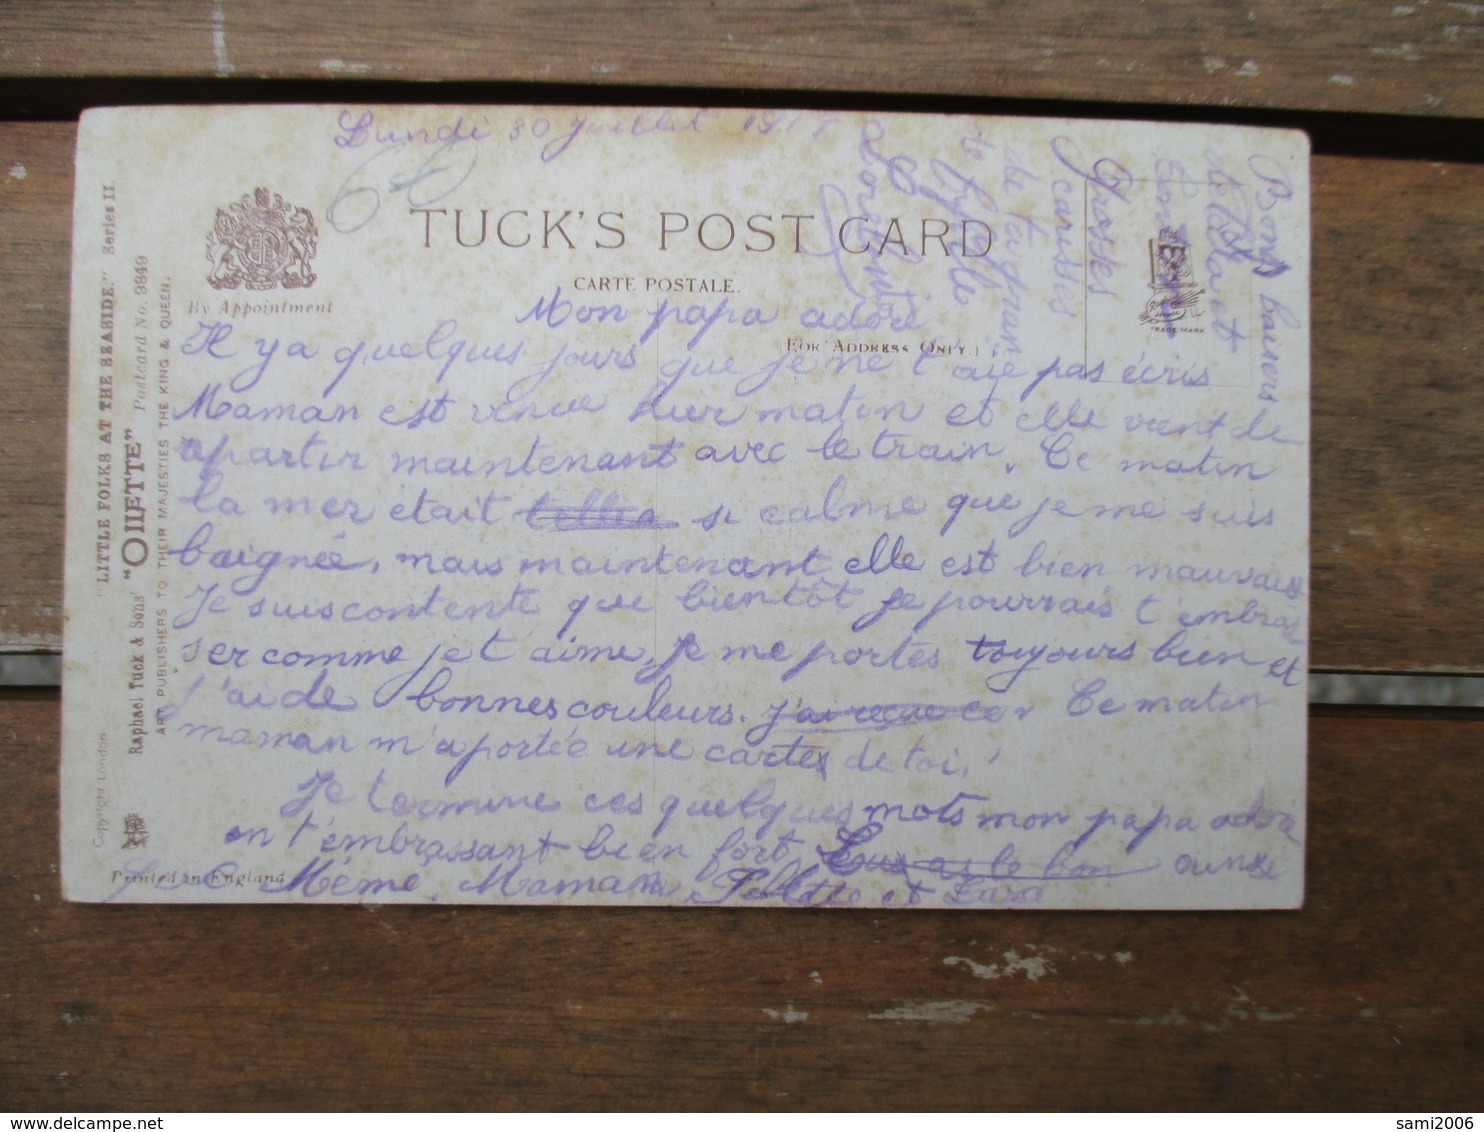 Lundi 30 juillet 1917
60
TUCK'S POST CARD
CARTE POSTALE.
(FOR ADDRESS ONLY.)
By Appointment
"LITTLE FOLKS AT THE SEASIDE." Series II.
Raphael Tuck & Sons' "OILETTE" Postcard No. 9849
ART PUBLISHERS TO THEIR MAJESTIES THE KING & QUEEN.
Copyright London
Printed in England
TRADE MARK
Mon papa adoré
Il y a quelques jours que je ne t'aie pas écris
Maman est venue hier matin et elle vient de
partir maintenant avec le train. Ce matin
la mer était si calme que je me suis
baignée, mais maintenant elle est bien mauvaise
Je suis contente que bientôt je pourrais t'embras
ser comme je t'aime. Je me portes toujours bien et
j'ai de bonnes couleurs. j'ai reçue ce Ce matin
maman m'a portée une cartes de toi.
Je termine ces quelques mots mon papa adoré
en t'embrassant bien fort
Mémé, Maman, et
Bons baisers
de et
Grosses
carisses
de ta